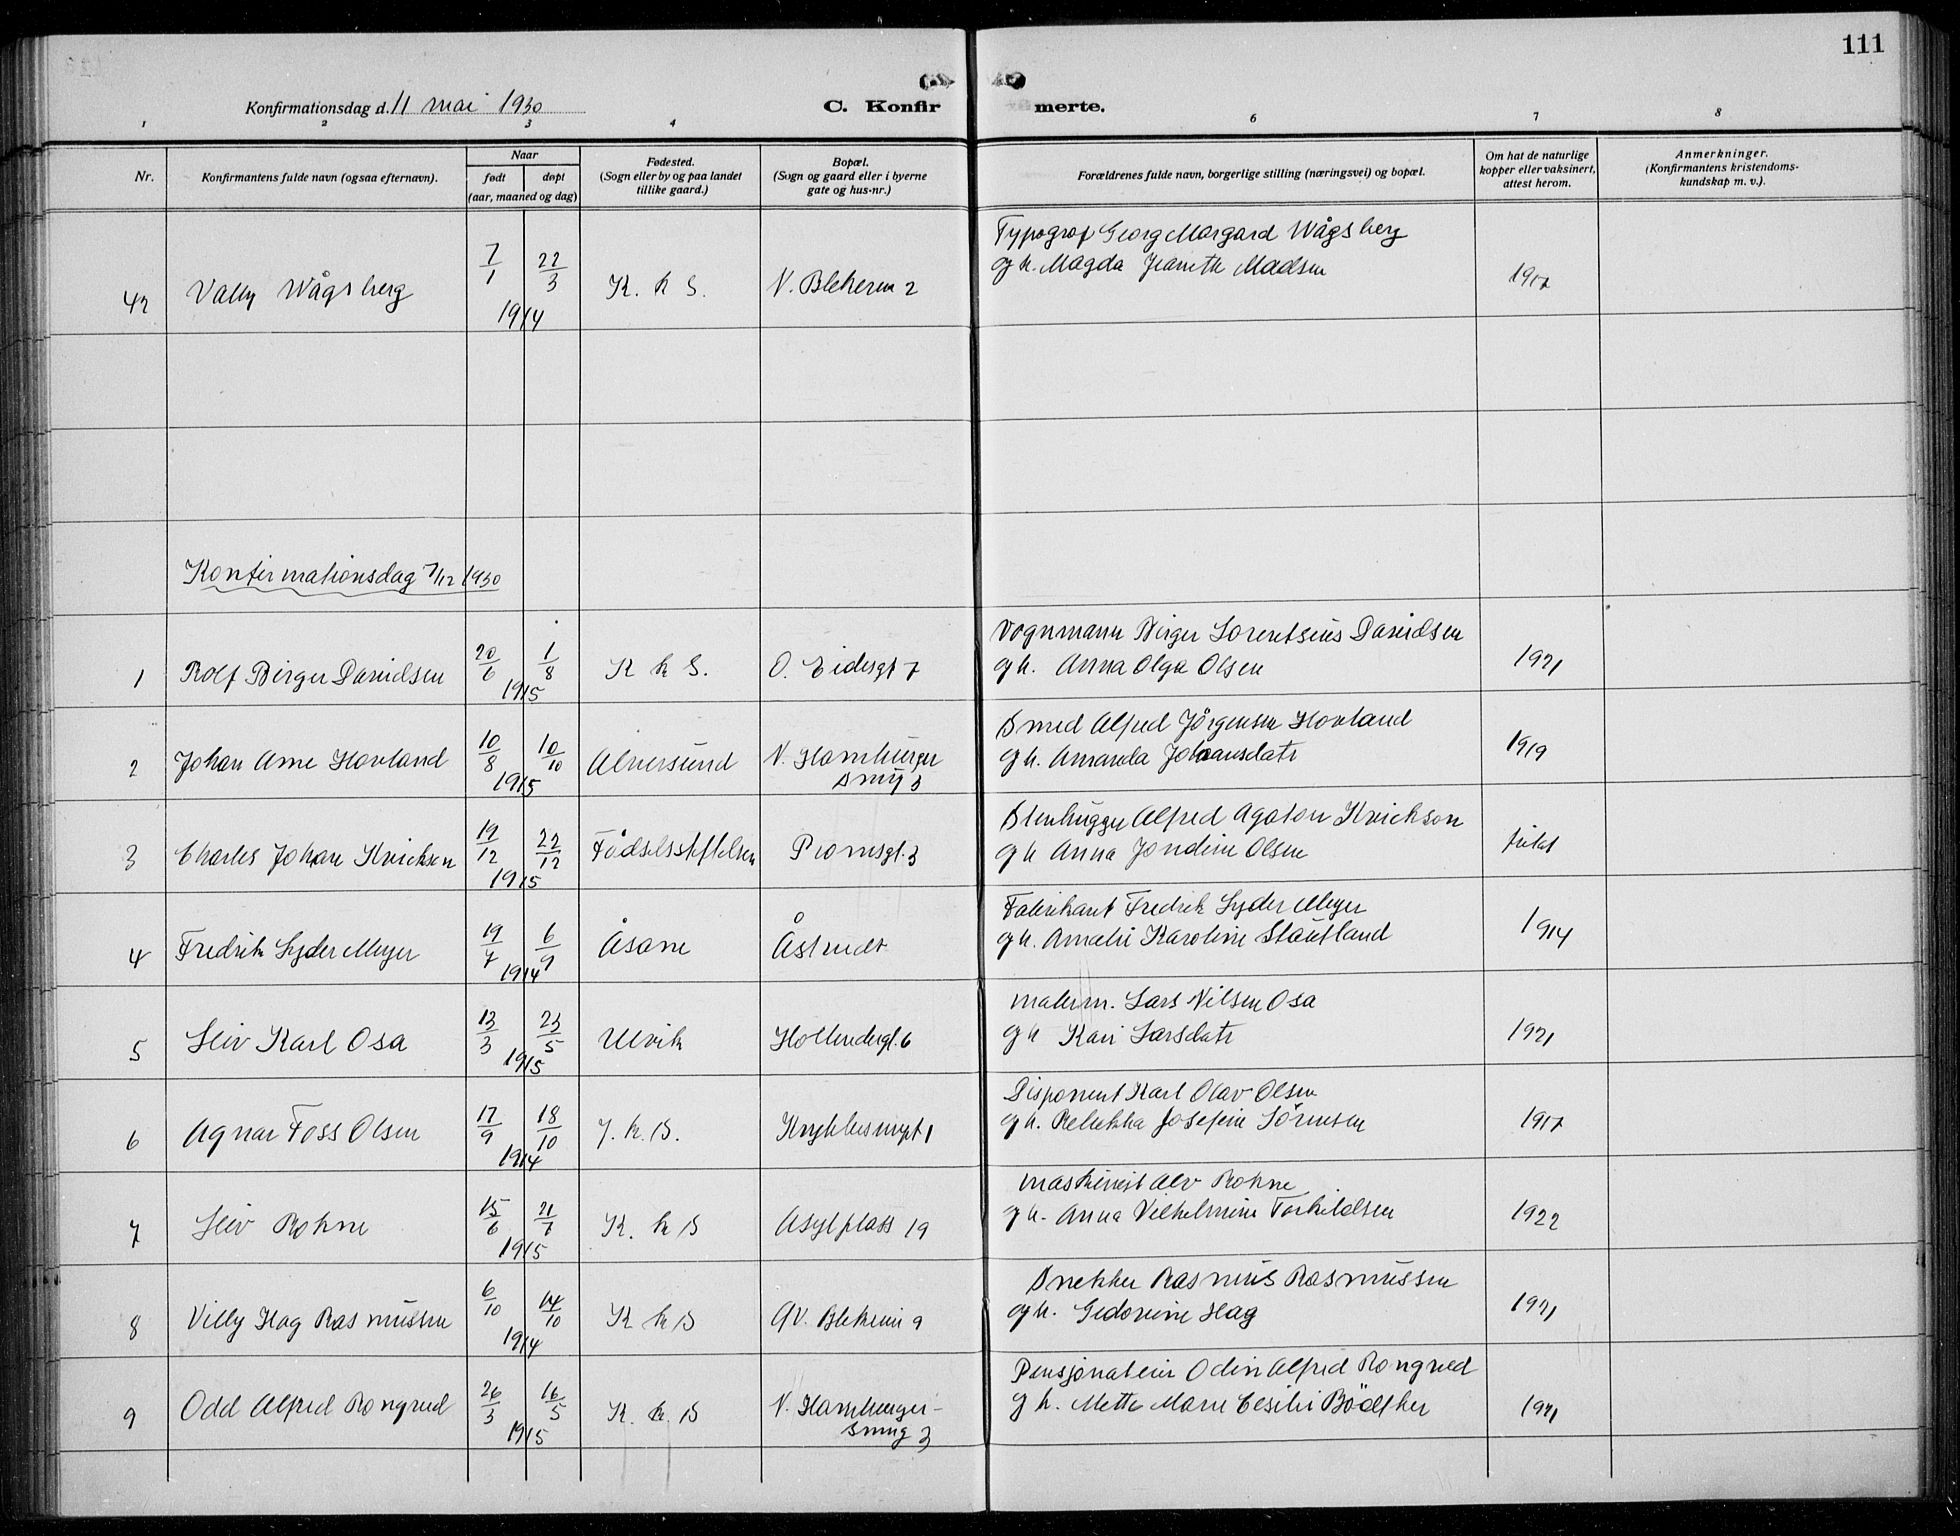 111
Konfirmationsdag d. 11 mai 1930
C. Konfir merte.
1 2 3 4 6 7 8
Nr.
Konfirmantens fulde navn (ogsaa efternavn).
Naar
født
døpt
(aar, maaned og dag)
Fødested.
(Sogn eller by og paa landet
tillike gaard.)
Bopæl.
(Sogn og gaard eller i byerne
gate og hus-nr.)
Forældrenes fulde navn, borgerlige stilling (næringsvei) og bopæl.
Om hat de naturlige
kopper eller vaksinert,
attest herom.
Anmerkninger.
(Konfirmantens kristendoms-
kundskap m. v.).
42 Vally Wågsberg 7/1 22/3 1914 K. k S. N. Blekevei 2
Typograf Georg Margard Wågsberg
og h. Magda Jeaneth Madsen
1917
Konfirmationsdag 7/12 1930
1 Rolf Birger Davidsen 20/6 1/8 1915 K k S. O. Eidesgt 7
Vognmann Birger Lorentseus Davidsen
og h. Anna Olga Olsen
1921
2 Johan Arne Hovland 10/8 10/10 1915 Alversund N. Hamburger
smug 3
Smed Alfred Jörgensen Hovland
og h. Amanda Johansdatr
1919
3 Charles Johan Krickson 19/12 22/12 1915 Födselsstiftelsen Promsgt. 3
Stenhugger Alfred Agaton Krickson
og h Anna Jondine Olsen
4 Fredrik Lyder Meyer 19/7 6/9 1914 Åsane Åstvedt
Fabrikant Fredrik Lyder Meyer
og h. Amalie Karoline Stautland
1914
5 Leiv Karl Osa 13/3 23/5 1915 Ulvik Hollendergt. 6
malerm. Lars Nilsen Osa
og h Kari Larsdatr
1921
6 Agnar Foss Olsen 17/9 18/10 1914 J. k. S. 1
Disponent Karl Olav Olsen
og h. Rebekka Josefine Sörensen
1917
7 Leiv Rohne 15/6 21/6 1915 K. k S Asylplass 19
maskinist Alv Rohne
og h. Anna Vilhelmine Torkildsen
1922
8 Villy Hag Rasmussen 6/10 14/10 1914 K k S Ø V. Blekevei 9
Snekker Rasmus Rasmussen
og h. Gedorine Hag
1921
9 Odd Alfred Rongved 26/3 16/5 1915 K. k. S N. Hamburger-
smug 3
Pensjonateier Odin Alfred Rongved
og h. Mette Marie Cesilie Bödtker
1921